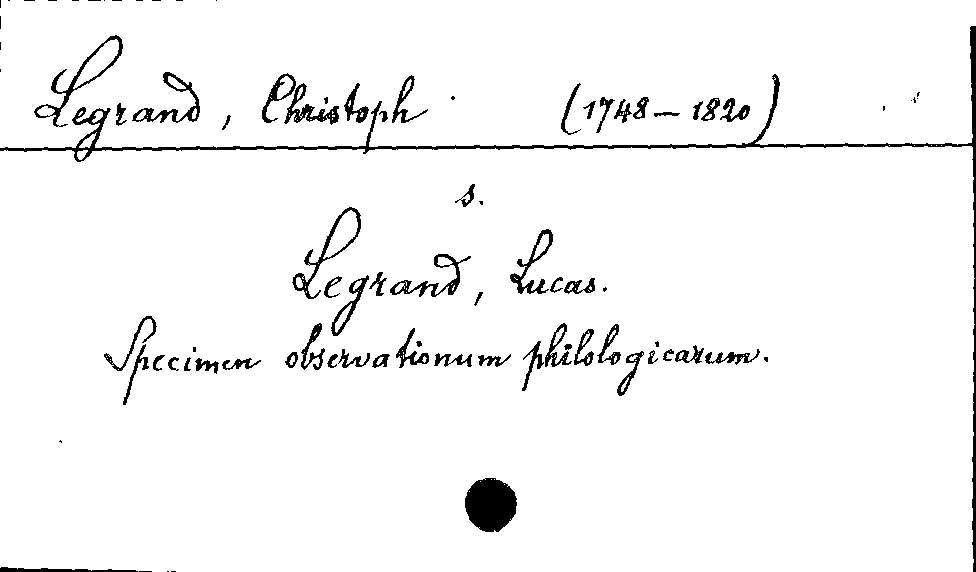 Legrand, Christoph (1748-1820)
s.
Legrand, Lucas.
Specimen observationum philologicarum.